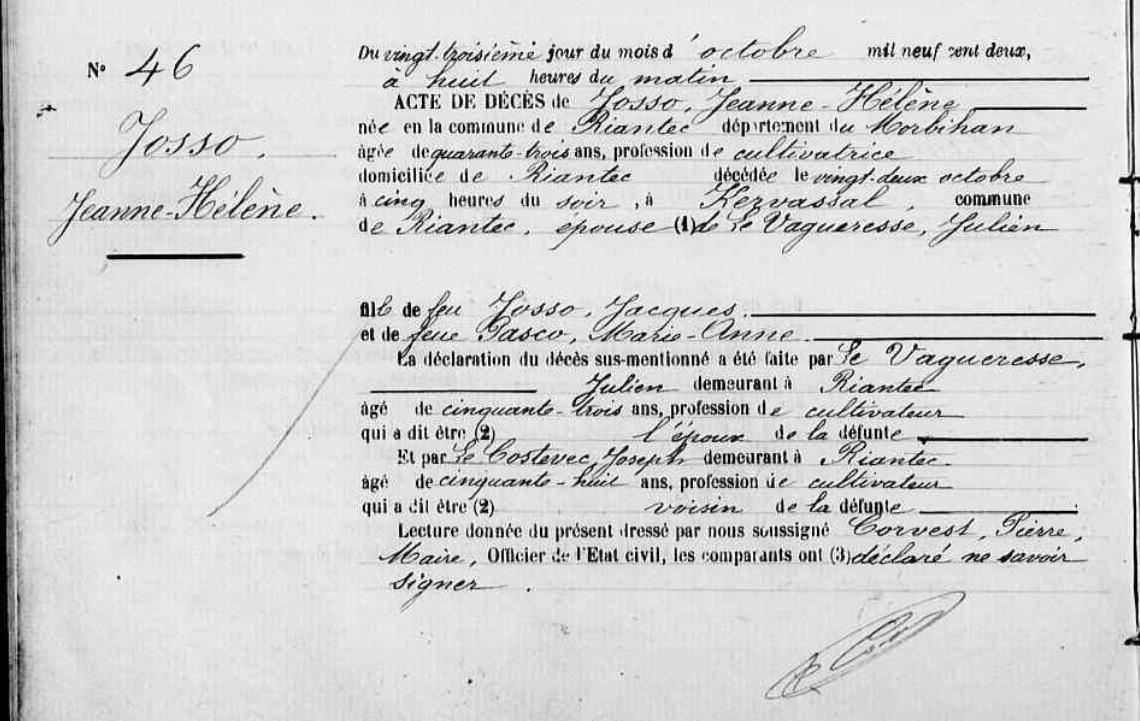 N° 46
Josso,
Jeanne-Hélène.
Du vingt-troisième jour du mois d'octobre mil neuf cent deux,
à huit heures du matin
ACTE DE DÉCÈS de Josso, Jeanne-Hélène
née en la commune de Riantec département du Morbihan
âgée de quarante-trois ans, profession de cultivatrice
domiciliée de Riantec décédée le vingt-deux octobre
à cinq heures du soir, à Kervassal, commune
de Riantec, épouse (1) de Le Vagueresse, Julien
fille de feu Josso, Jacques.
et de feue Pasco, Marie-Anne.
La déclaration du décès sus-mentionné a été faite par Le Vagueresse,
Julien demeurant à Riantec
âgé de cinquante-trois ans, profession de cultivateur
qui a dit être (2) l'époux de la défunte
Et par Le Costevec, Joseph demeurant à Riantec.
âgé de cinquante-huit ans, profession de cultivateur
qui a dit être (2) voisin de la défunte
Lecture donnée du présent dressé par nous soussigné Corvest, Pierre,
Maire, Officier de l'Etat civil, les comparants ont (3) déclaré ne savoir
signer.